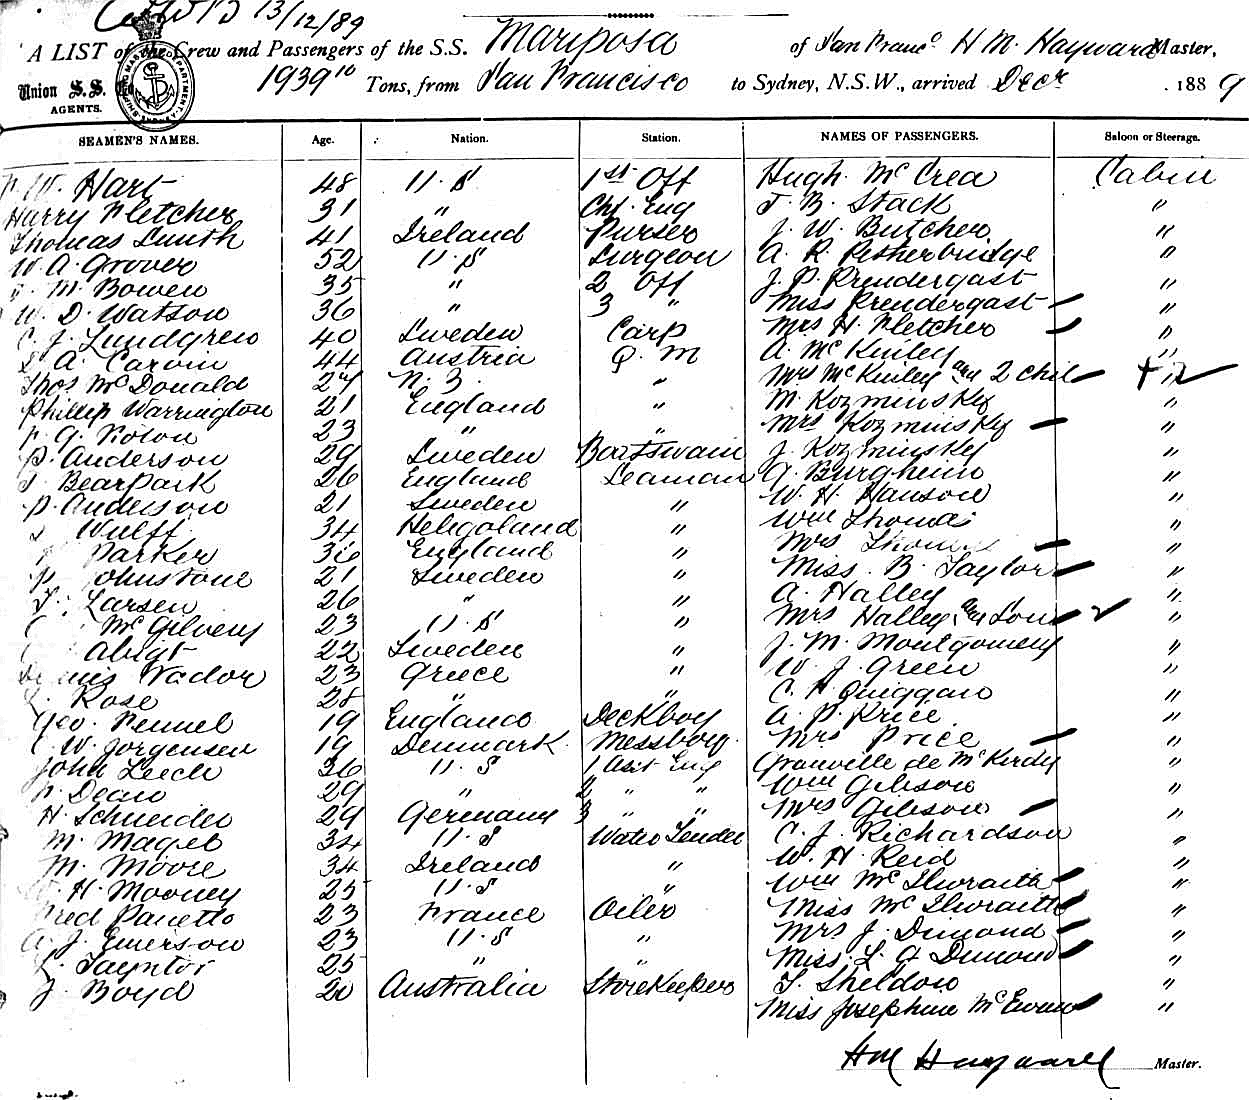 13/12/89
A LIST of the Crew and Passengers of the S.S. Mariposa of San Franco H M. Hayward Master,
Union S.S. Co AGENTS. 1939 10 Tons, from San Francisco to Sydney, N.S.W., arrived Decr . 1889
SEAMEN'S NAMES. Age. Nation. Station. NAMES OF PASSENGERS. Saloon or Steerage.
W. Hart 48 U.S 1st Off Hugh McCrea Cabin
Harry Fletcher 31 " Chf. Eng T. B. Stack "
Thomas Smith 41 Ireland Purser J. W. Butcher "
W. A. Grover 52 U.S Surgeon A. R. Petherbridge "
M. Bowen 35 " 2 Off J. P. Prendergast "
W. D. Watson 36 " 3 " Miss Prendergast "
C. J. Lundgren 40 Sweden Carp Mrs H. Fletcher "
A. Carvin 44 Austria Q. M A. McKinley "
Thos McDonald 27 N.Z. " Mrs McKinley and 2 chil + 2 "
Phillip Warrington 21 England " M. Kozminsky "
G. Nolan 23 " " Mrs Kozminsky "
P. Anderson 29 Sweden Boatswain J. Kozminsky "
T. Bearpark 26 England Seaman G. Burgheim "
P. Anderson 21 Sweden " W. H. Hanson "
Wulff 34 Heligoland " Wm Thomas "
Parker 36 England " Mrs Thomas "
P. Johnstone 21 Sweden " Miss B. Taylor "
T. Larsen 26 " " A. Halley "
McGilvery 23 U.S " Mrs Halley and Son "
Abigt 22 Sweden " J. M. Montgomery "
Dennis Nador 23 Greece " W. J. Green "
Rose 28 " " C. H. Quiggan "
Geo. Fennel 19 England Deckboy A. P. Price "
C. W. Jorgensen 19 Denmark Messboy. Mrs Price "
John Leech 36 U.S 1 Asst Eng Granville de McKirdy "
Dean 29 " 2 " " Wm Gibson "
H. Schneider 29 Germany 3 " " Mrs Gibson "
M. Magee 34 U.S Water Tender C. J. Richardson "
M. Moore 34 Ireland " W. H. Reid "
H. Mooney 25 U.S " Wm McIlwraith "
Fred Panetto 23 France Oiler Miss McIlwraith "
A. J. Emerson 23 U.S " Mrs J. Dimond "
Tayntor 25 " " Miss L. G. Dimond "
J. Boyd 20 Australia Storekeeper T. Sheldon "
Miss Josephine McEwan "
HM Hayward Master.